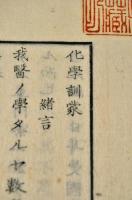 化學訓蒙
緒言
我醫ノ學タルヤ數